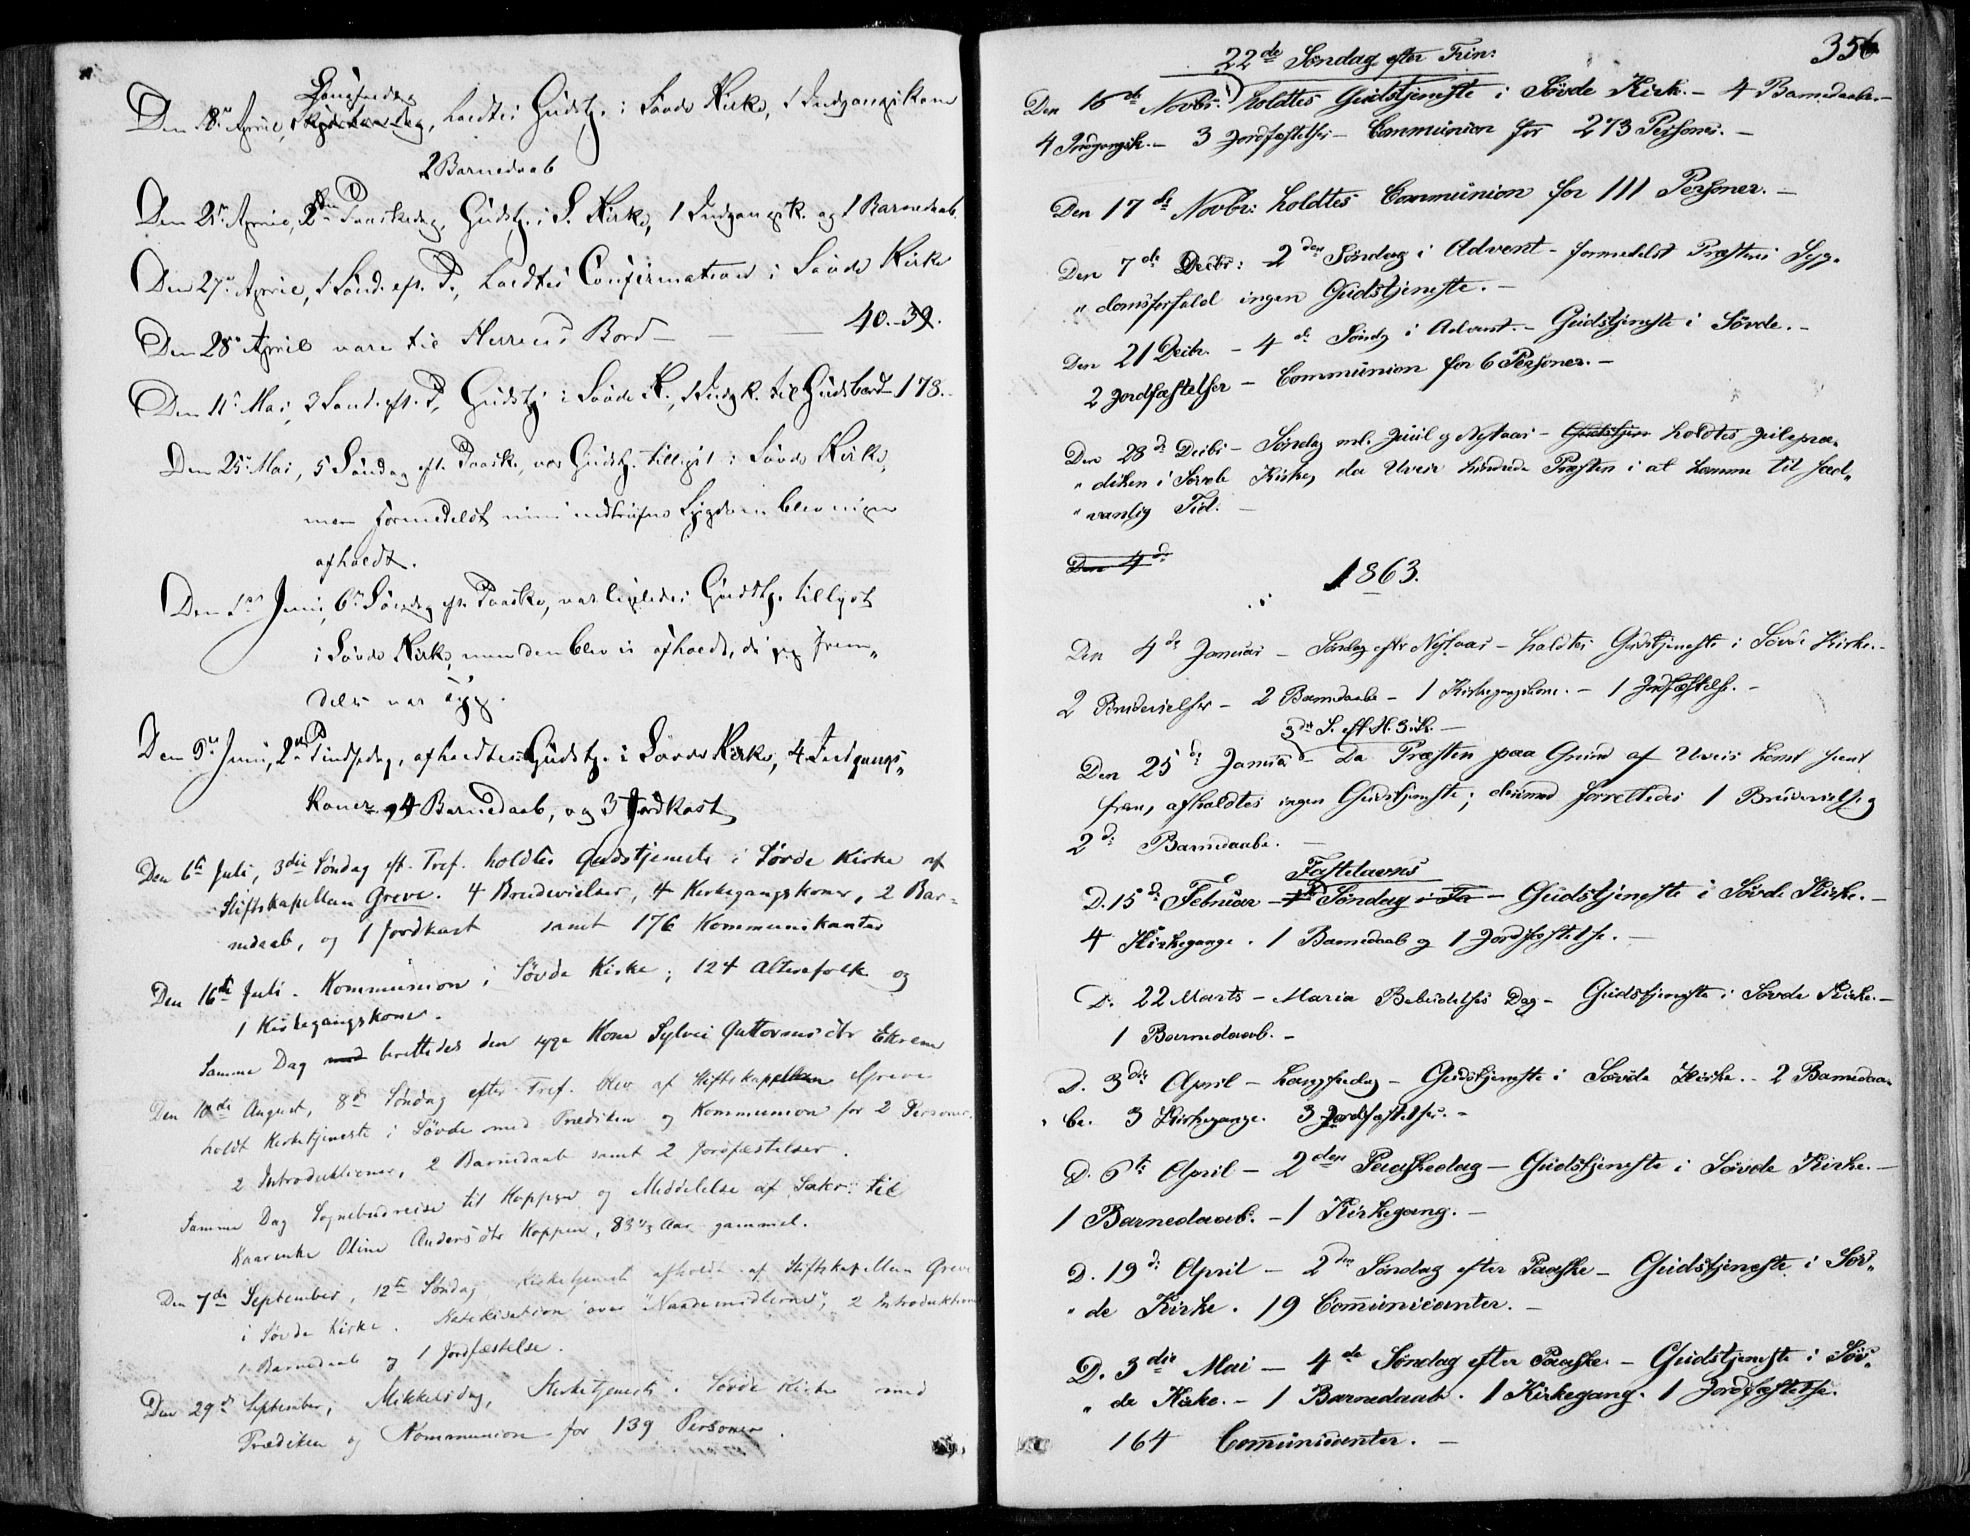 Langfredag
Den 18de April, Skjærtorsdag, holdtes Gudstj. i Søvde Kirke, 1 Indgangskone
2 Barnedaab
Den 21de April, 2den Paaskedag, Gudstj. i S. Kirke, 1 Indgangsk. og 1 Barnedaab.
Den 27de April, 1 Sønd. eft. P., holdtes Confirmation i Søvde Kirke
Den 28de April vare til Herrens Bord — — 40.-39.
Den 11te Mai, 3 Sønd. eft. P, Gudstj. i Søvde K., 1 Indgk. til Guds bord 178.
Den 25de Mai, 5 Søndag eft. Paaske, var Gudstj. tillyst i Søvde Kirke,
men formedelst min indtrufne Sygdom blev ingen
afholdt.
Den 1ste Juni, 6te Søndag eft. Paaske, var ligeledes Gudstj. tillyst
i Søvde Kirke, men den blev ei afholdt, da jeg frem„
deles var syg.
Den 9de Juni, 2den Pindsedag, afholdtes Gudstj. i Søvde Kirke, 4 Indgangs„
koner, 4 Barnedaab, og 3 Jordkast
Den 6te Juli, 3die Søndag eft. Tref. holdtes Gudstjeneste i Søvde Kirke af
Stiftskapellan Greve. 4 Brudevielser, 4 Kirkegangskoner, 2 Bar-
nedaab, og 1 Jordkast samt 176 Kommunikanter
Den 16de Juli. Kommunion i Søvde Kirke; 124 Altersfolk og
1 Kirkegangskone.
Samme Dag med berettedes den syge Kone Sylvei Guttormsdtr Ekrene
Den 10de August, 8de Søndag efter Tref. blev af Stiftskapellan Greve
holdt Kirketjeneste i Søvde med Prædiken og Kommunion for 2 Personer.
2 Introduktioner, 2 Barnedaab samt 2 Jordfæstelser.
Samme Dag Sognebudreise til Hoppen og Meddelelse af Sakr: til
Kaarenke Oline Andersdtr Hoppen, 83 1/3 Aar gammel.
Den 7de September, 12te Søndag Kirketjeneste afholdt af Stiftskapellan Greve
i Søvde Kirke. Katekisation over "Naademidlerne", 2 Introduktion
1 Barnedaab og 1 Jordfæstelse.
Den 29de September, Mikkelsdag, Kirketjeneste i Søvde Kirke med
Prædiken og Kommunion for 139 Personer.
356
22de Søndag efter Trin:
Den 16de Novbr: holdtes Gudstjeneste i Søvde Kirk. — 4 Barnedaab. —
4 Indgangsk. — 3 Jordfæstelser — Communion for 273 Personer. —
Den 17de Novbr: holdtes Communion for 111 Personer. —
Den 7de Decbr: 2den Søndag i Advent — formedelst Præstens Syg„
„ domsforfald ingen Gudstjeneste. —
Den 21 Decbr. — 4de Søndg i Advent. — Gudstjeneste i Søvde. —
2 Jordfæstelser — Communion for 6 Personer. —
Den 28de Decbr — Søndag ml. Juul og Nytaar — Gudstjen holdtes Julepræ„
„ diken i Søvde Kirke, da Uveir hindrede Præsten i at komme til sæd„
„ vanlig Tid. —
Den 4de
1863.
Den 4de Januar — Søndag efter Nytaar — holdtes Gudstjeneste i Søvde Kirke. —
2 Brudevielser — 2 Barnedaabe — 1 Kirkegangskone. — 1 Jordfæstelse. —
3de S. eft H. 3 K. —
Den 25de Januar — Da Præsten paa Grund af Uveir komt sent
frem, afholdtes ingen Gudstjeneste; derimod forrettedes 1 Brudevielse og
2de Barnedaabe. —
Fastelavns
D. 15de Februar — 1ste Søndag i Fa — Gudstjeneste i Søvde Kirke. —
4 Kirkegange. 1 Barnedaab og 1 Jordfæstelse. —
D. 22 Marts — Maria Bebudelses Dag — Gudstjeneste i Søvde Kirke. —
1 Barnedaab. —
D. 3die April — Langfredag — Gudstjeneste i Søvde Kirke. — 2 Barnedaa„
„ be. 3 Kirkegange. 3 Jordfæstelser. —
D. 6te April — 2den Paaskedag — Gudstjeneste i Søvde Kirke. —
1 Barnedaab. — 1 Kirkegang. —
D. 19de April — 2den Søndag efter Paaske — Gudstjeneste i Søv„
„ de Kirke. 19 Communicanter. —
D. 3die Mai — 4de Søndag efter Paaske. — Gudstjeneste i Søv„
„ de Kirke. — 1 Barnedaab. 1 Kirkegang. 1 Jordfæstelse.
164 Communicanter. —